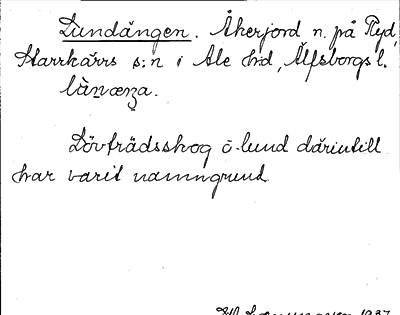 Lundängen. Åkerjord n. på Ryd,
Starrkärrs s:n i Ale hd, Älfsborgs l.
Lövträdsskog o. lund därintill
har varit namngrund
1937